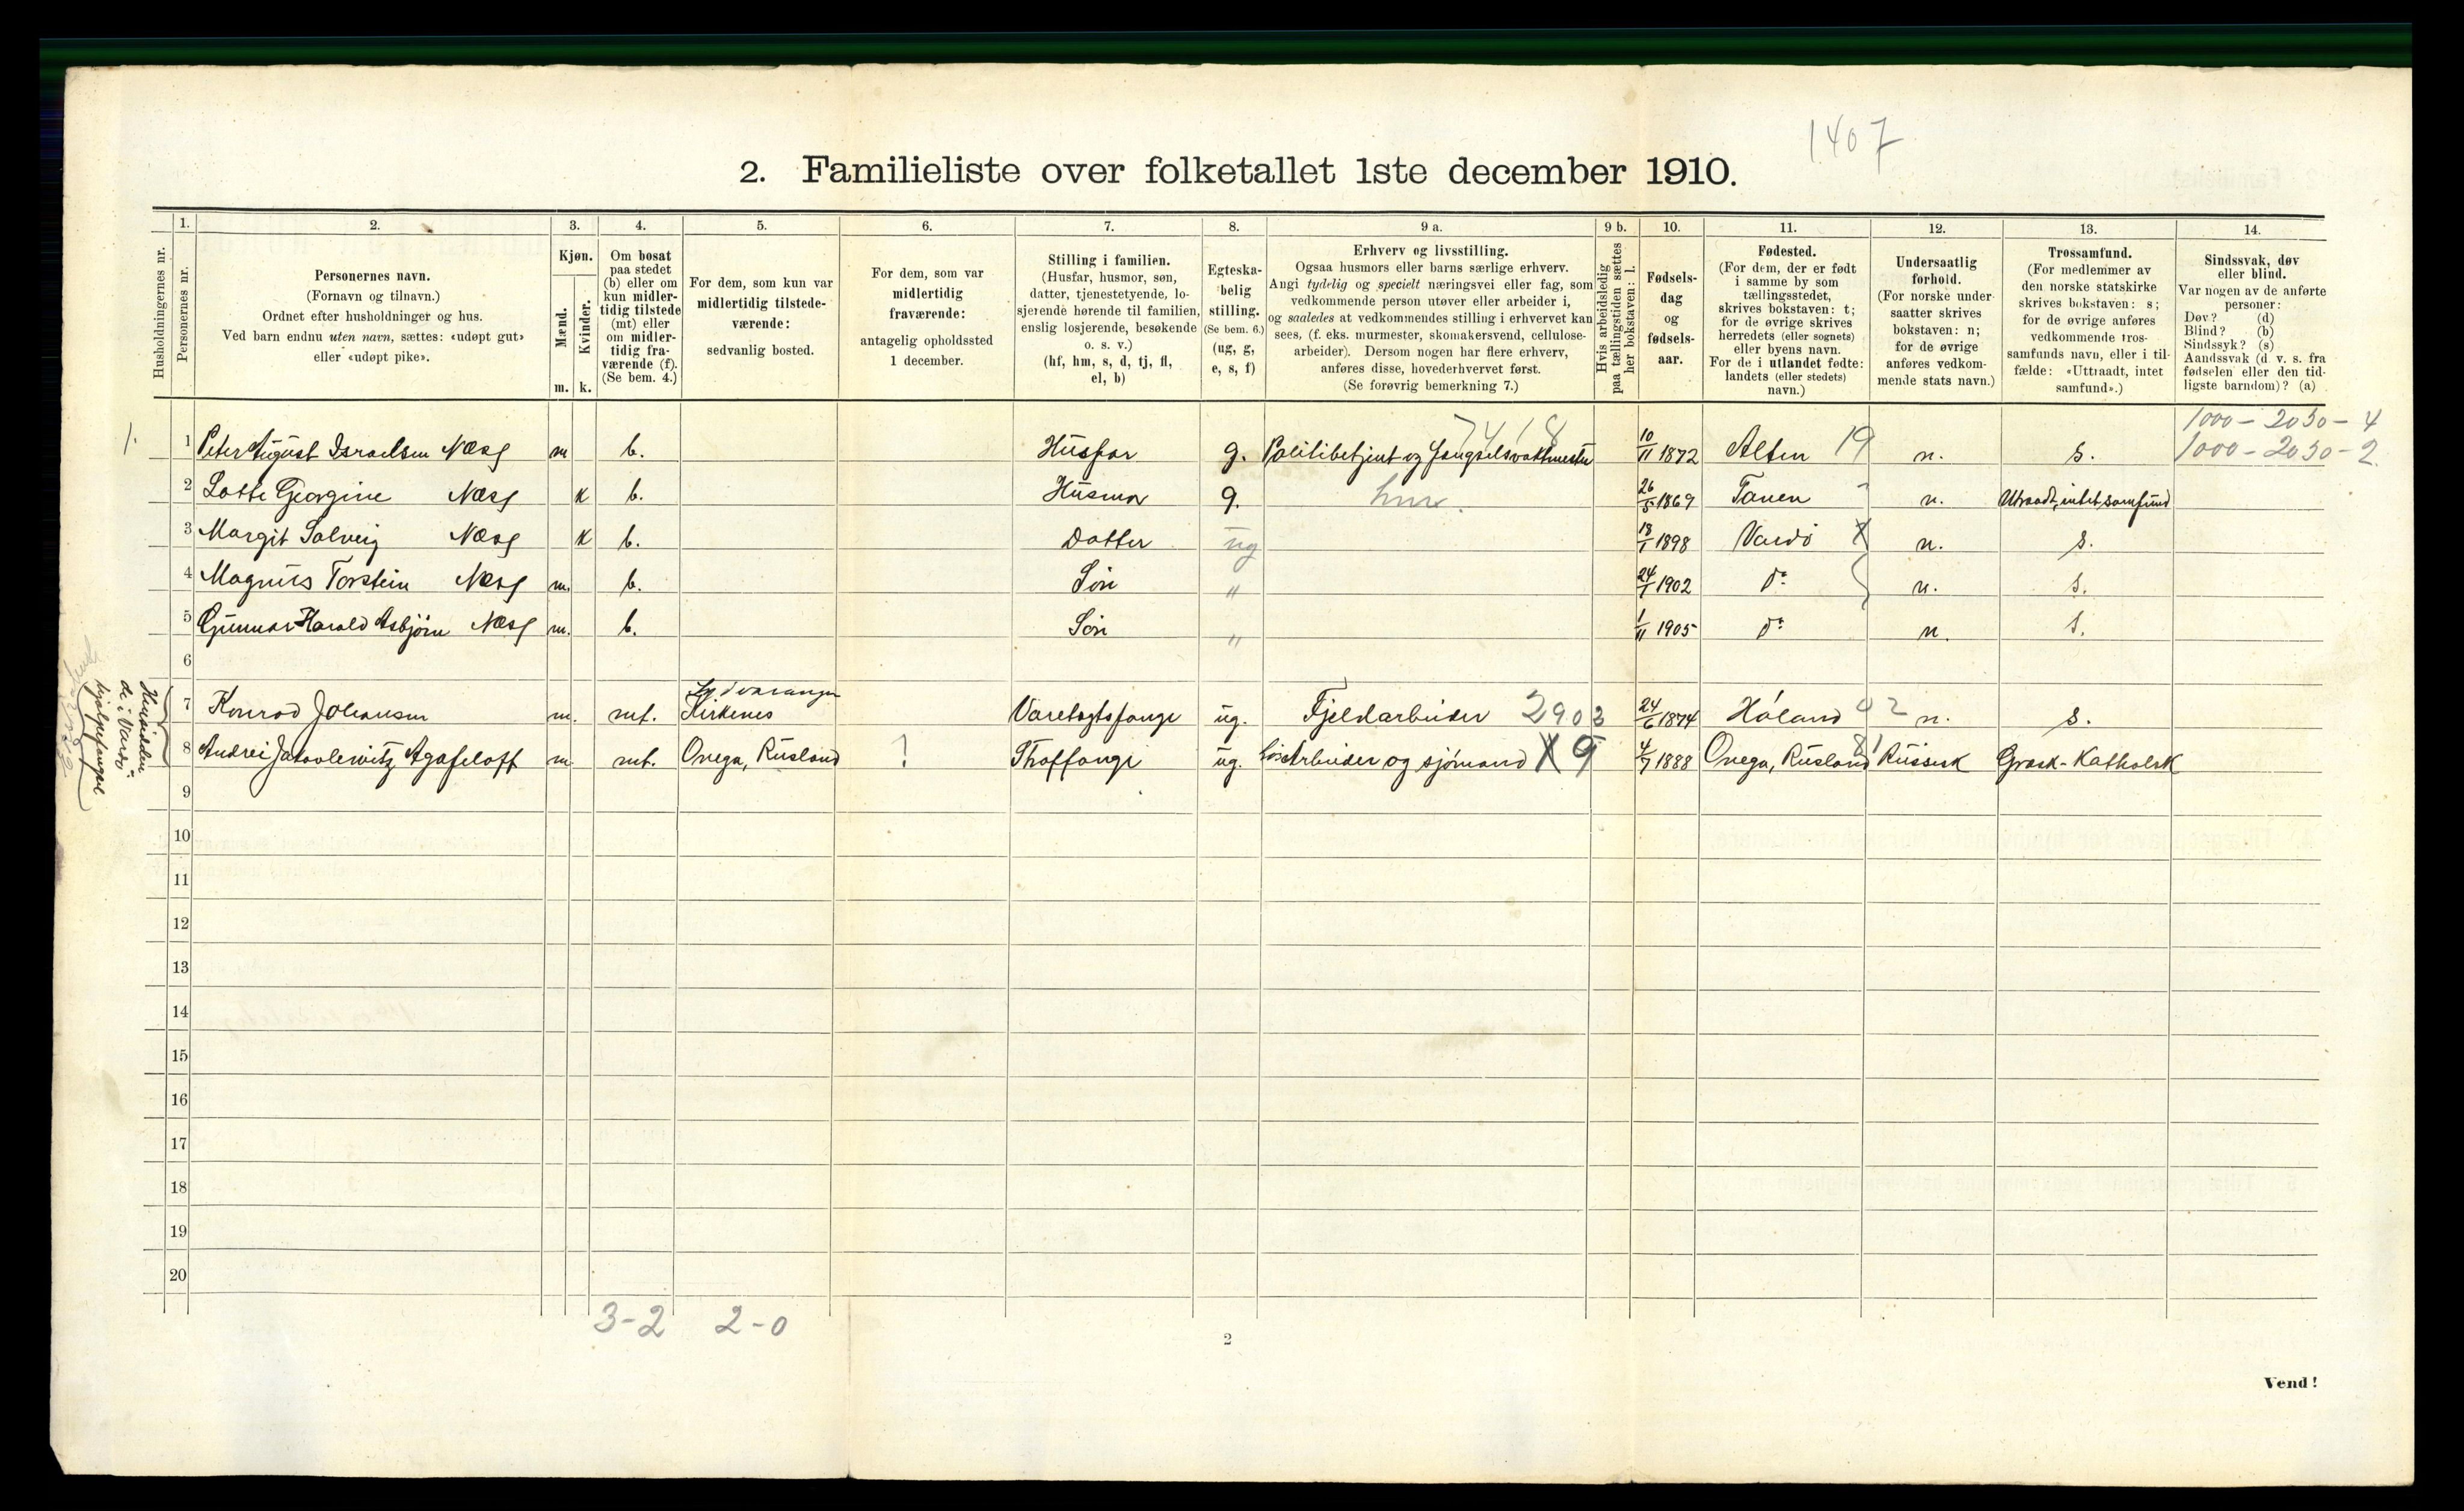 1407
2. Familieliste over folketallet 1ste december 1910.
Husholdningernes nr.
1.
Personernes nr.
2.
Personernes navn.
(Fornavn og tilnavn.)
Ordnet efter husholdninger og hus.
Ved barn endnu uten navn, sættes: «udøpt gut»
eller «udøpt pike».
3.
Kjøn.
Mænd.
Kvinder.
m. k.
4.
Om bosat
paa stedet
(b) eller om
kun midler-
tidig tilstede
(mt) eller
om midler-
tidig fra-
værende (f).
(Se bem. 4.)
5.
For dem, som kun var
midlertidig tilstede-
værende:
sedvanlig bosted.
6.
For dem, som var
midlertidig
fraværende:
antagelig opholdssted
1 december.
7.
Stilling i familien.
(Husfar, husmor, søn,
datter, tjenestetyende, lo-
sjerende hørende til familien,
enslig losjerende, besøkende
o. s. v.)
(hf, hm, s, d, tj, fl,
el, b)
8.
Egteska-
belig
stilling.
(Se bem. 6.)
(ug, g,
e, s, f)
9 a.
Erhverv og livsstilling.
Ogsaa husmors eller barns særlige erhverv.
Angi tydelig og specielt næringsvei eller fag, som
vedkommende person utøver eller arbeider i,
og saaledes at vedkommendes stilling i erhvervet kan
sees, (f. eks. murmester, skomakersvend, cellulose-
arbeider). Dersom nogen har flere erhverv,
anføres disse, hovederhvervet først.
(Se forøvrig bemerkning 7.)
9 b.
Hvis arbeidsledig
paa tællingstiden sættes
her bokstaven: l.
10.
Fødsels-
dag
og
fødsels-
aar.
11.
Fødested.
(For dem, der er født
i samme by som
tællingsstedet,
skrives bokstaven: t;
for de øvrige skrives
herredets (eller sognets)
eller byens navn.
For de i utlandet fødte:
landets (eller stedets)
navn.)
12.
Undersaatlig
forhold.
(For norske under-
saatter skrives
bokstaven: n;
for de øvrige
anføres vedkom-
mende stats navn.)
13.
Trossamfund.
(For medlemmer av
den norske statskirke
skrives bokstaven: s;
for de øvrige anføres
vedkommende tros-
samfunds navn, eller i til-
fælde: «Uttraadt, intet
samfund».)
14.
Sindssvak, døv
eller blind.
Var nogen av de anførte
personer:
Døv? (d)
Blind? (b)
Sindssyk? (s)
Aandssvak (d. v. s. fra
fødselen eller den tid-
ligste barndom)? (a)
1000 - 2030 - 4
1. 1 Peter August Israelsen Næss m b. Husfar g. Politibetjent og fængselsvaktmester 7418 10/11 1872 Alten 19 n. s. 1000 - 2030 - 2
2 Lotte Georgine Næss k b. Husmor g. hm. 26/5 1869 Tanen n. Utraadt, intet samfund
3 Margit Solveig Næss k b. Datter ug 18/1 1898 Vardö X n. s.
4 Magnus Torstein Næss m. b. Sön " 24/1 1902 do n. s.
5 Gunnar Harald Asbjørn Næss m. b. Sön " 1/11 1905 do n. s.
6
Hensidden
de i Vardø
hjælpefængsel
7 Konrad Johansen m. mt. Sydvaranger Kirkenes Varetægtsfange ug. Fjeldarbeider 2903 24/6 1874 Höland 02 n. s.
8 Andrei Jakovlewitz Agafeloff m mt. Onega, Rusland ! Straffange ug. Løsarbeider og sjömand X 9 4/7 1888 Onega, Rusland 81 Russisk Græsk-Katholsk
9
10
11
12
13
14
15
16
17
18
19
20
3-2 2-0
2
Vend!